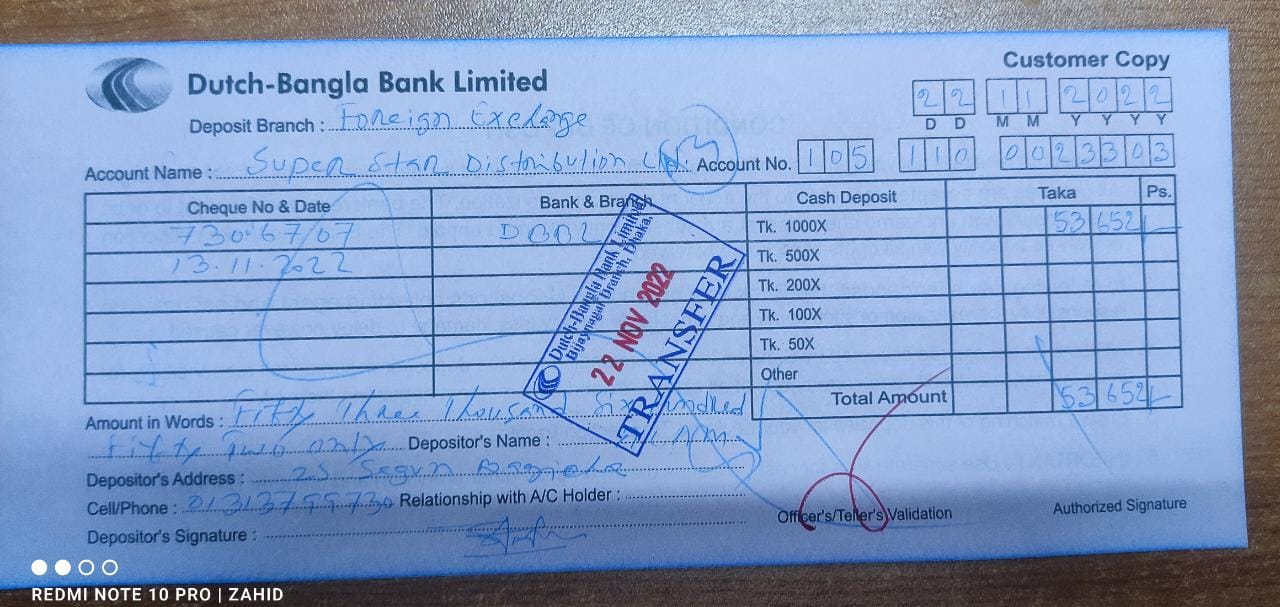 Customer Copy
Dutch-Bangla Bank Limited
22 11 2022
D D M M Y Y Y Y
Deposit Branch : Foreign Exchange
Account Name : Super Star Distribution Ltd. Account No. 105 110 0023303
Cheque No & Date Bank & Branch Cash Deposit Taka Ps.
7306707 DBBL Tk. 1000X 53 652/-
13.11.2022 Tk. 500X
Tk. 200X
Tk. 100X
Tk. 50X
Other
Total Amount 53 652/-
Dutch-Bangla Bank Limited
Bijaynagar Branch, Dhaka.
22 NOV 2022
TRANSFER
Amount in Words : Fifty Three Thousand Six Hundred
Fifty Two only Depositor's Name :
Depositor's Address : 25 Segun
Cell/Phone : 01313799730 Relationship with A/C Holder :
Depositor's Signature :
Officer's/Teller's Validation Authorized Signature
REDMI NOTE 10 PRO | ZAHID